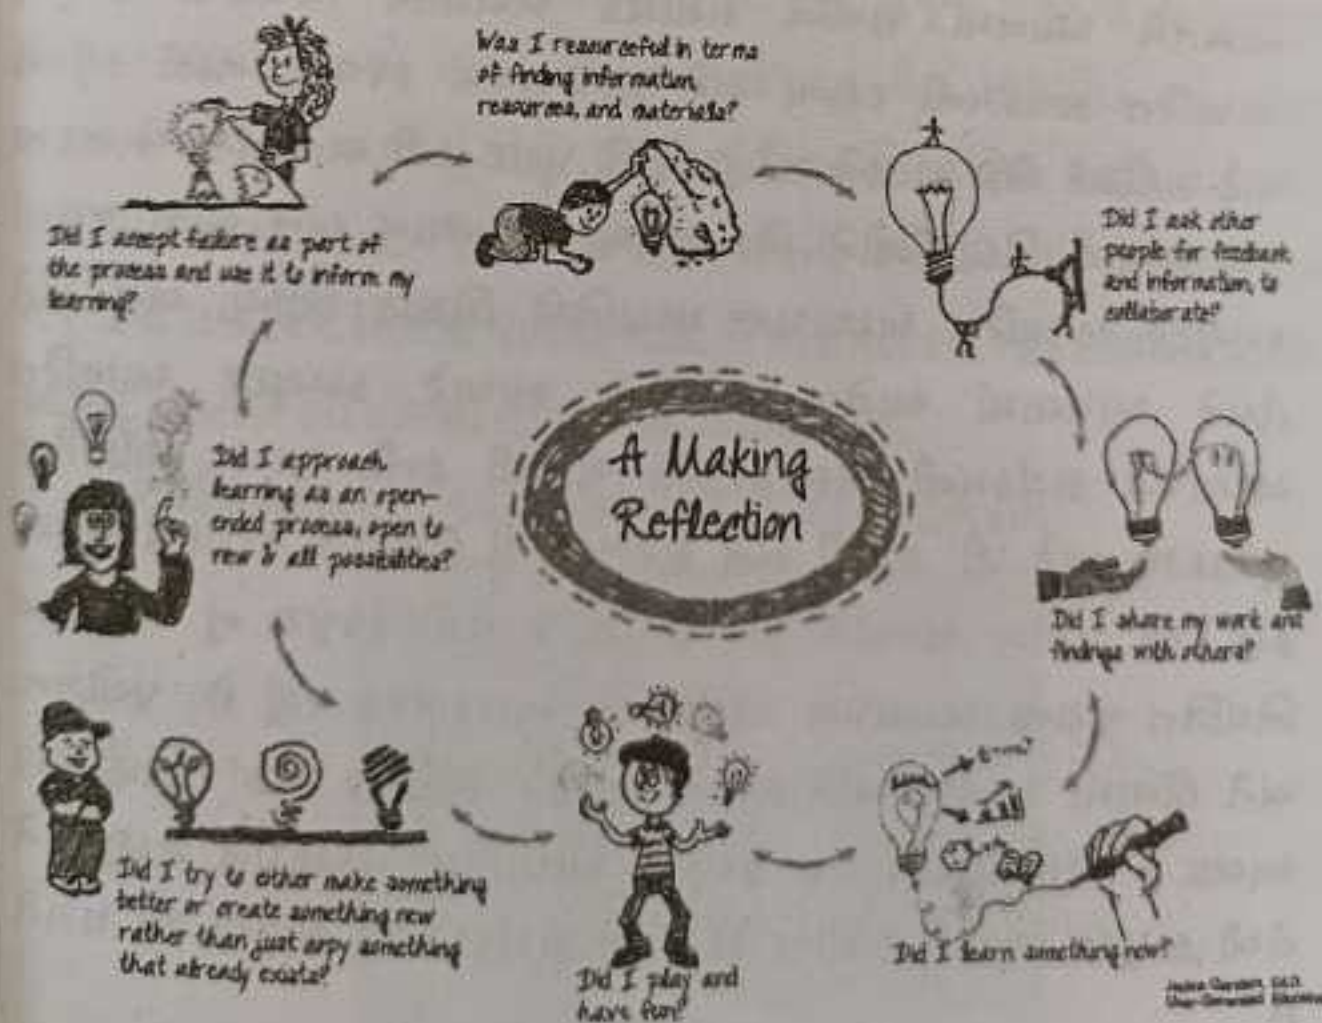 Was I resourceful in terms
of finding information,
resources, and materials?
Did I ask other
people for feedback
and information, to
collaborate?
Did I share my work and
findings with others?
Did I learn something new?
Did I play and
have fun?
Did I try to either make something
better or create something new
rather than just copy something
that already exists?
Did I approach
learning as an open-
ended process, open to
new & all possibilities?
Did I accept failure as part of
the process and use it to inform my
learning?
A Making
Reflection
User-Generated